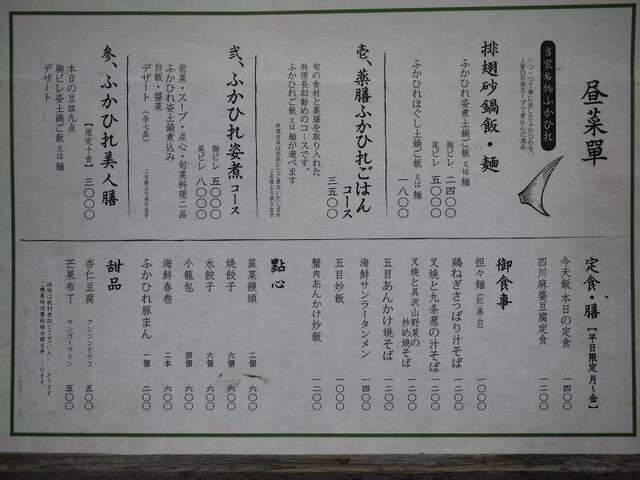 昼菜單
当家名物ふかひれ
一つ一つ丁寧に戻したふかひれを、
上質の白湯スープで煮込んだ逸品
排翅砂鍋飯・麺
ふかひれ姿煮土鍋ご飯 又は 麺
胸ビレ 二四〇〇
尾ビレ 五〇〇〇
ふかひれほぐし土鍋ご飯 又は 麺
一八〇〇
壱、薬膳ふかひれごはんコース
三五〇〇
旬の食材と薬膳を取り入れた
料理長お勧めのコースです。
ふかひれご飯 又は 麺が選べます
二名様より承ります
弐、ふかひれ姿煮コース
胸ビレ 五〇〇〇
尾ビレ 八〇〇〇
前菜・スープ・点心・旬菜料理二品
ふかひれ姿土鍋煮込み
白飯・醬菜
デザート (全七品)
二名様より承ります
参、ふかひれ美人膳
【限定十食】 三〇〇〇
本日の豆皿九点
胸ビレ姿土鍋ご飯 又は 麺
デザート
定食・膳 【平日限定 月〜金】
今天飯 本日の定食 一四〇〇
四川麻婆豆腐定食 一二〇〇
御食事
担々麺 一〇〇〇
鶏ねぎさっぱり汁そば 一二〇〇
叉焼と九条葱の汁そば 一二〇〇
叉焼と具沢山野菜の炒め焼そば 一二〇〇
五目あんかけ焼そば 一二〇〇
海鮮サンラータンメン 一四〇〇
五目炒飯 一〇〇〇
蟹肉あんかけ炒飯 一二〇〇
點心
韮菜饅頭 二個 六〇〇
焼餃子 六個 六〇〇
水餃子 六個 六〇〇
小籠包 四個 六〇〇
海鮮春巻 二本 六〇〇
ふかひれ豚まん 一個 二〇〇
甜品
杏仁豆腐 アンニンドウフ 五〇〇
芒果布丁 マンゴープリン 五〇〇